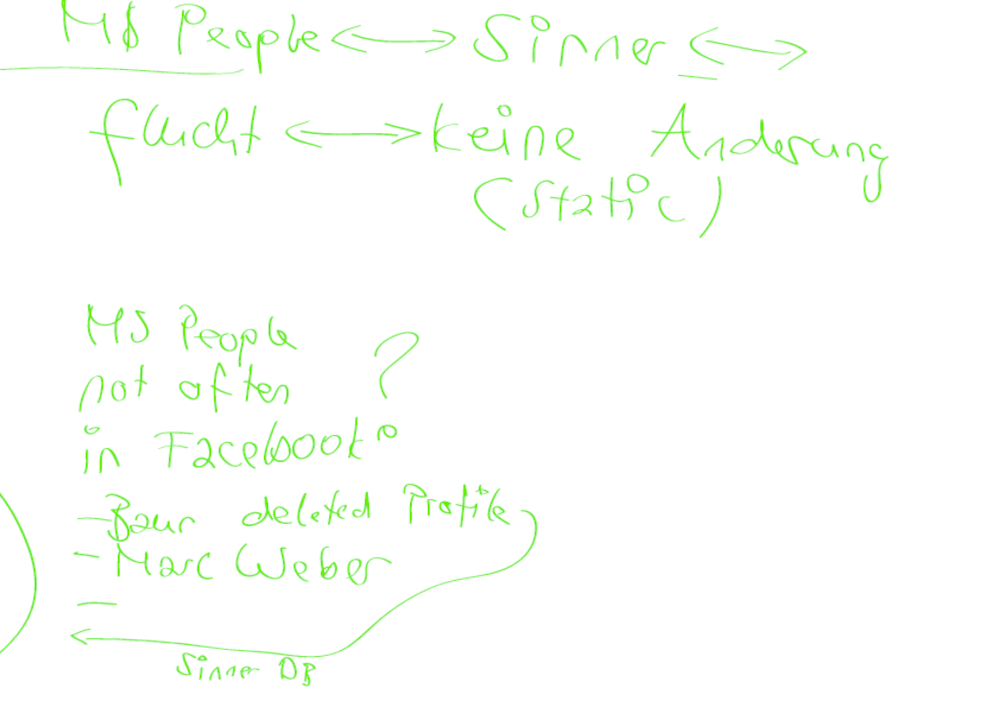 MS People <—> Sinner <—>
flucht <—> keine Änderung
(static)
MS People
not often ?
in Facebook
- Baur deleted Profile
- Marc Weber
-
Sinner DB